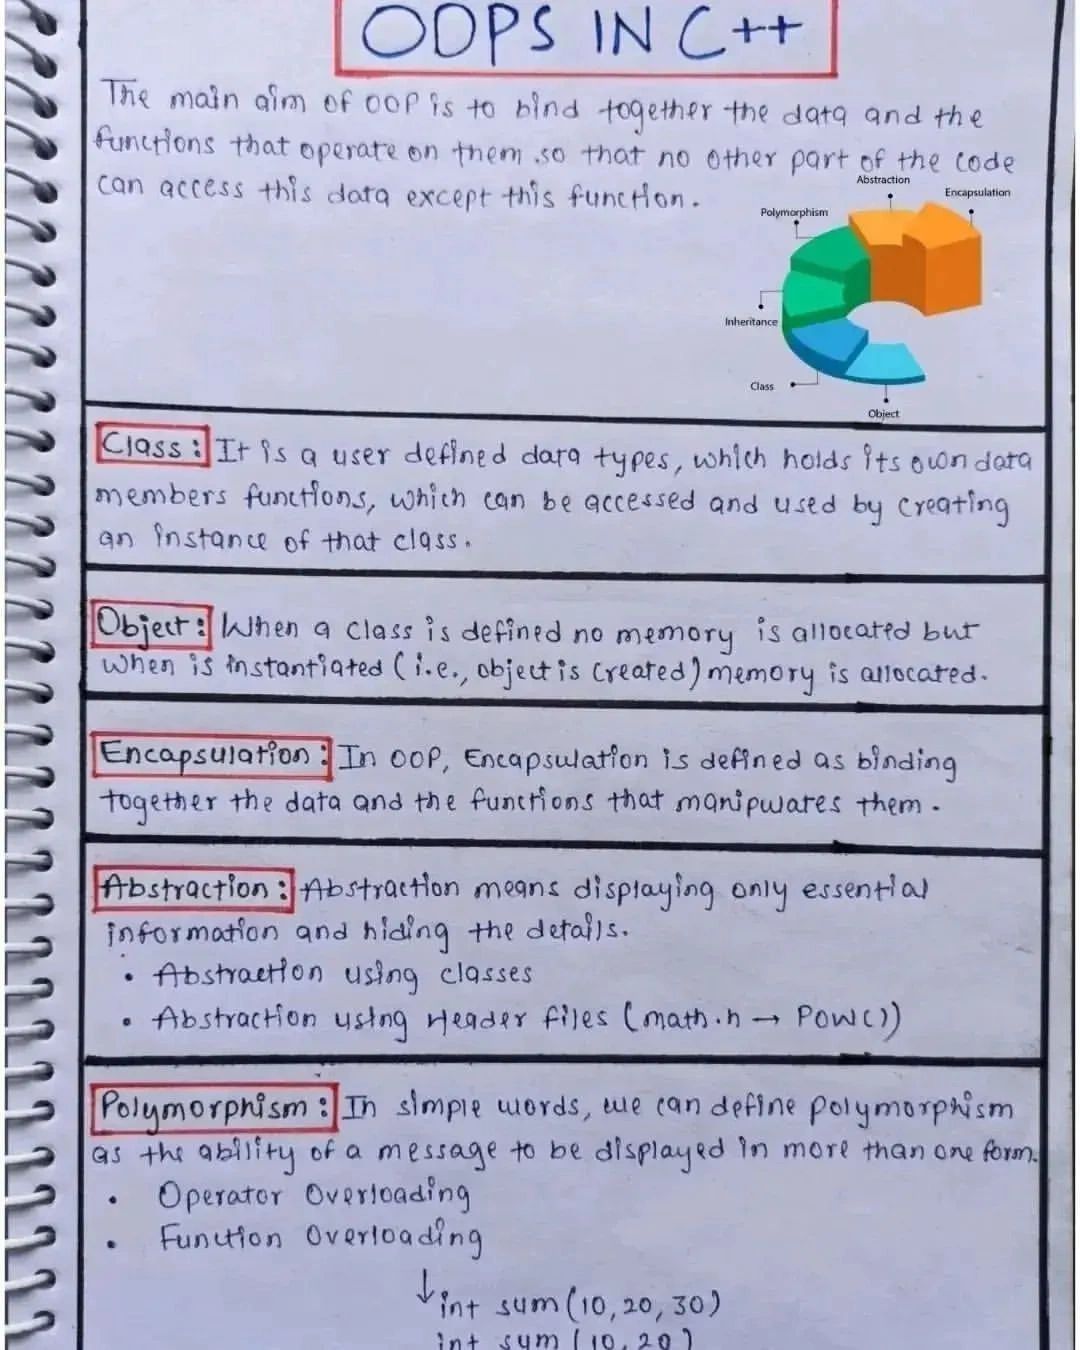 OOPS IN C++
The main aim of OOP is to bind together the data and the
functions that operate on them so that no other part of the code
can access this data except this function.
Abstraction
Encapsulation
Polymorphism
Inheritance
Class
Object
Class: It is a user defined data types, which holds its own data
members functions, which can be accessed and used by creating
an instance of that class.
Object: When a class is defined no memory is allocated but
when is instantiated (i.e., object is created) memory is allocated.
Encapsulation: In OOP, Encapsulation is defined as binding
together the data and the functions that manipulates them.
Abstraction: Abstraction means displaying only essential
information and hiding the details.
• Abstraction using classes
• Abstraction using Header files (math.h → Pow())
Polymorphism: In simple words, we can define polymorphism
as the ability of a message to be displayed in more than one form.
• Operator Overloading
• Function Overloading
↓ int sum (10, 20, 30)
int sum (10, 20)